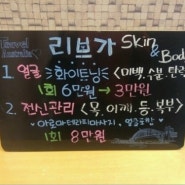 Travel
Australia♡
리브가 Skin
& Bod
1. 얼굴 화이트닝 <미백, 수분, 탄력
1회 6만원 → 3만원
2. 전신관리 <목, 어깨, 등, 복부>
아로마테라피마사지, 얼굴포함
1회 8만원